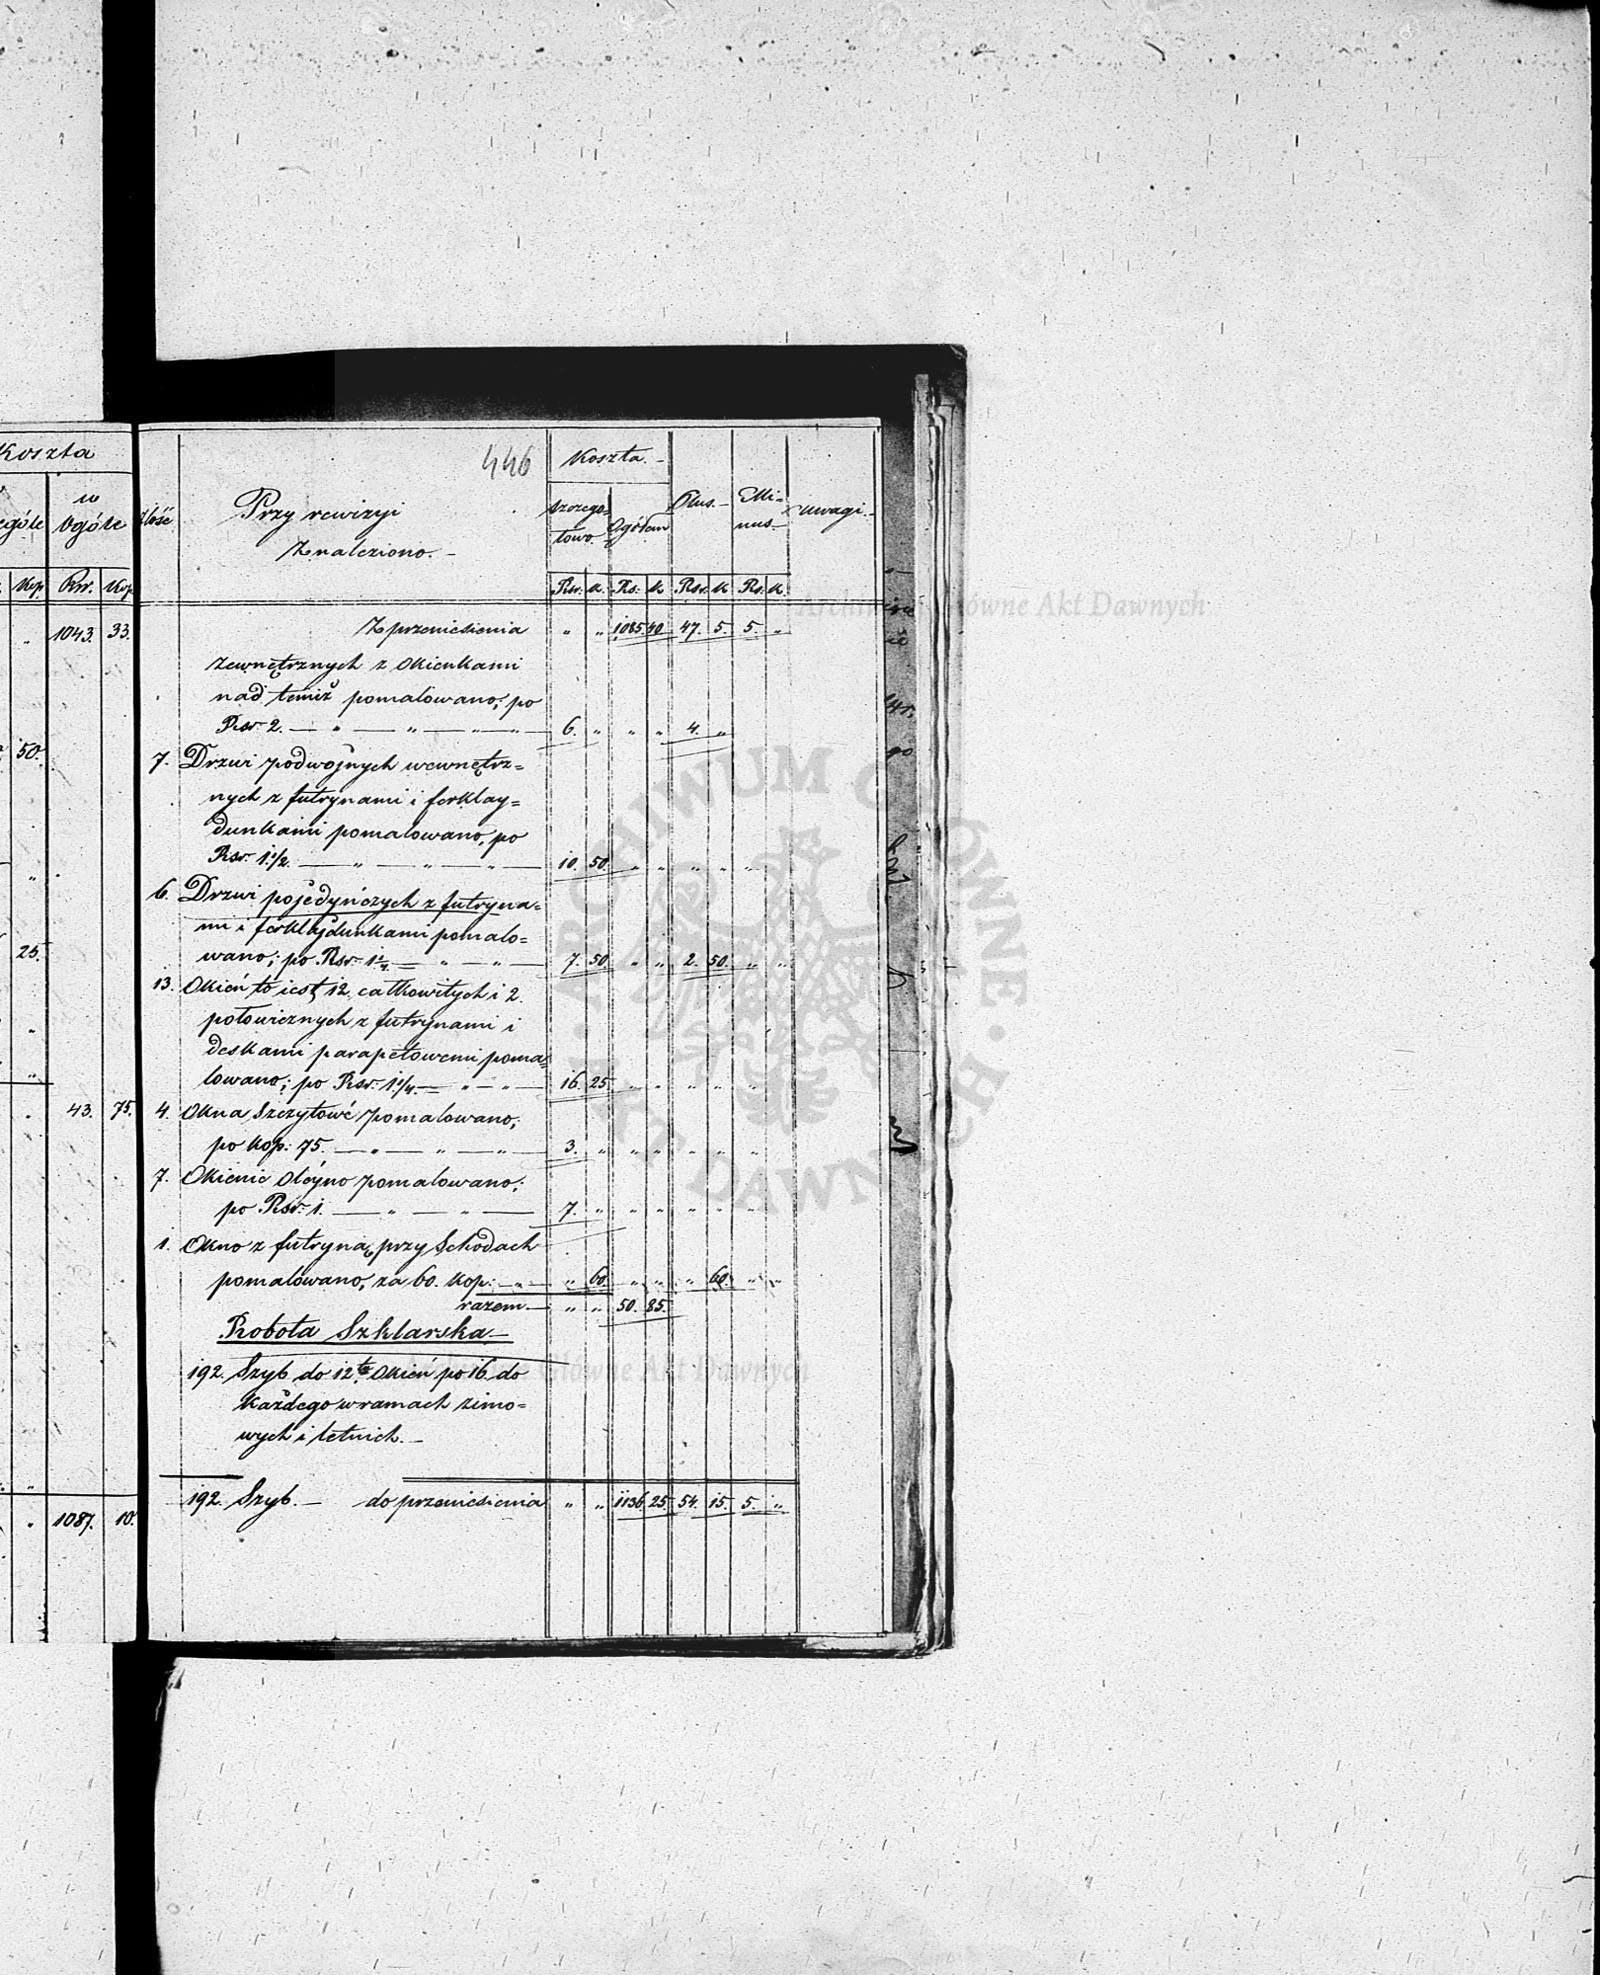 Koszta
w
Ogóle
Kop. Rsr. Kop.
" 1043. 33.
50.
"
25.
"
"
" 43. 75.
"
" 1087. 10.
446
Ilość
Przy rewizyi
Znaleziono. –
Koszta. –
szczegó=
łowo.
Ogółem
Plus. –
Mi=
nus. –
Uwagi. –
Rsr. k. Rs. k. Rsr. k. Rs. k.
Z przeniesienia " " 1085. 40. 47. 5. 5. "
zewnętrznych z okienkami
nad temiż pomalowano; po
Rsr. 2. — " — " — " — " 6. " " " 4. "
7. Drzwi podwójnych wewnętrz=
nych z futrynami i ferklay=
dunkami pomalowano, po
Rsr. 1 1/2. — " — " — " — 10. 50. " " " " " "
6. Drzwi pojedyńczych z futryna=
mi i ferklaydunkami pomalo=
wano; po Rsr. 1 1/4. — " — " — 7. 50. " " 2. 50. " "
13. Okień to iest 12. całkowitych i 2.
połowicznych z futrynami i
deskami parapetowemi poma=
lowano; po Rsr. 1 1/4. — " — " — 16. 25. " " " " "
4. Okna Szczytowe pomalowano;
po kop. 75. — " — " — " — 3. " " " " " "
7. Okienic oleyno pomalowano;
po Rsr. 1. — " — " — 7. " " " " " "
1. Okno z futryną przy Schodach
pomalowano, za 60. kop. — " — " 60. " " " 60. " "
razem — " " 50. 85.
Robota Szklarska –
192. Szyb do 12tu okień po 16. do
każdego w ramach zimo=
wych i letnich. –
192. Szyb. – do przeniesienia " " 1136. 25. 54. 15. 5. "
Archiwum Główne Akt Dawnych
ARCHIWUM GŁÓWNE AKT DAWNYCH
Archiwum Główne Akt Dawnych